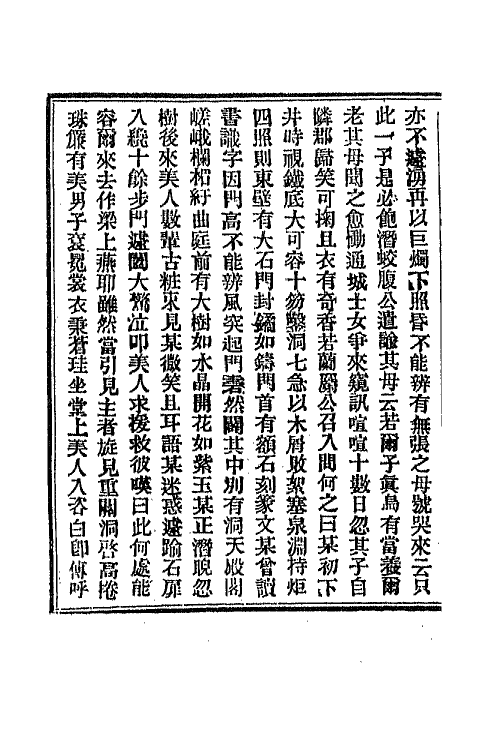 亦不遽湧再以巨燭下照昏不能辨有無張之母號哭來云只
此一子是必飽潛蛟腹公遣諭其母云若爾子眞烏有當養爾
老其母聞之愈慟通城士女爭來窺訊喧喧十數日忽其子自
隣郡歸笑可掬且衣有奇香若蘭麝公召入問何之曰某初下
井時視鐵底大可容十笏鑿洞七急以木屑敗絮塞泉淵持炬
四照則東壁有大石門封鐍如鑄門首有額石刻篆文某曾讀
書識字因門高不能辨風突起門砉然闢其中別有洞天殿閣
嵯峨欄楯紆曲庭前有大樹如水晶開花如紫玉某正潛睨忽
樹後來美人數輩古粧束見某微笑且耳語某迷惑遽踰石扉
入纔十餘步門遽闔大驚泣叩美人求援救彼嘆曰此何處能
容爾來去作梁上燕耶雖然當引見主者旋見重關洞啓高捲
珠簾有美男子袞冕裳衣秉蒼珪坐堂上美人入咨白卽傳呼